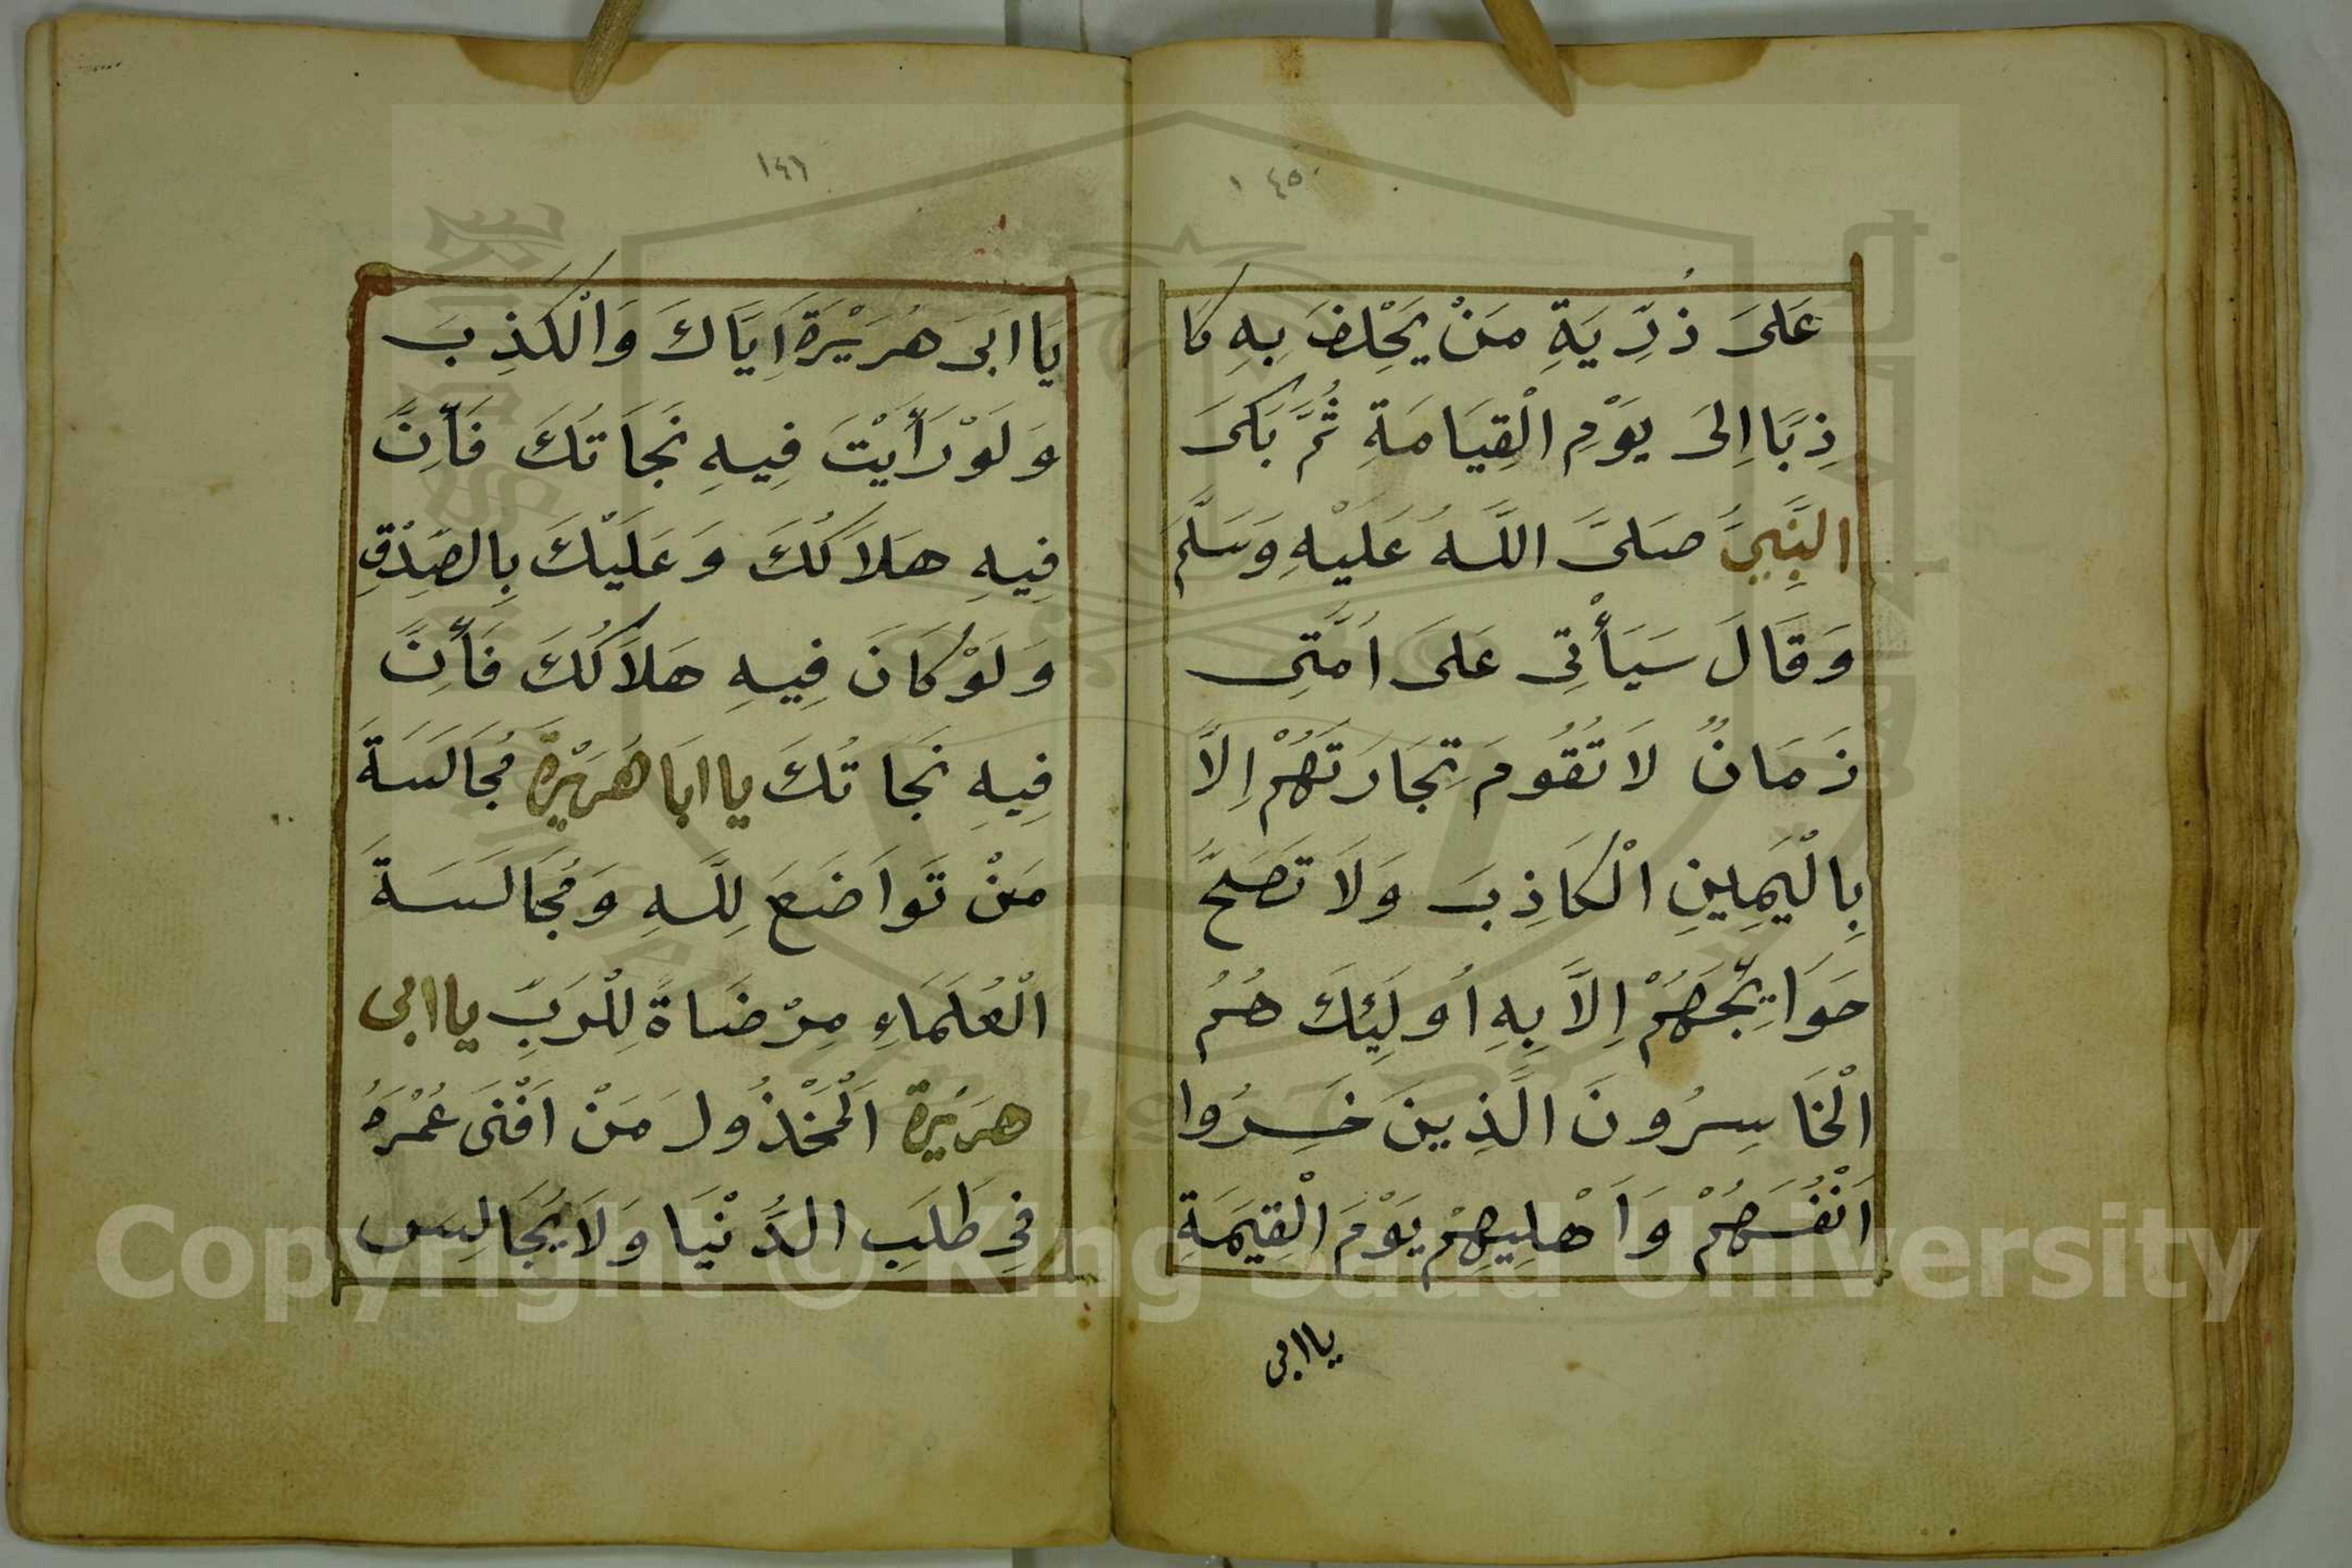 ١٤٥
عَلىَ ذُرِّيَةِ مَنْ يَحْلِفَ بِهِ كَا
ذِبًا اِلىَ يَوْمِ الْقِيَامَةِ ثُمَّ بَكىَ
النَّبِيَّ صَلىَّ اللَّهُ عَلَيْهِ وَسَلَّمَ
وَقَالَ سَيَأْتِى عَلىَ اُمَّتِى
زَمَانٌ لاَ تَقُومَ تِجَارَتَهُمْ اِلاَّ
بِالْيَمِينِ الْكَاذِبَ وَلاَ تَصَحَّ
حَوَايِجَهُمْ اِلاَّ بِهِ اُولَئِكَ هُمُ
الْخَاسِرُونَ الَّذِينَ خَسِرُوا
اَنْفُسَهُمْ وَاَهْلِيهِمْ يَوْمَ الْقِيَمَةِ
يا ابى
١٤٦
يَا ابَى هُرَيْرَةَ اِيَّاكَ وَالْكَذِبَ
وَلَوْ رَأَيْتَ فِيهِ نَجَاتُكَ فَأِنَّ
فِيهِ هَلاَكُكَ وَعَلَيْكَ بِالصِّدْقِ
وَلَوْ كَانَ فِيهِ هَلاَكُكَ فَأِنَّ
فِيهِ نَجَاتُكَ يا ابَا هُرَيْرَةَ مُجَالَسَةَ
مَنْ تَوَاضَعَ لِلَّهِ وَمُجَالَسَةَ
الْعُلَمَاءِ مِرْضَاةً لِلْرَبِّ يا ابى
هرَيْرَة اَلْمَخْذُولَ مَنْ اَفْنَى عُمْرَهُ
فِى طَلَبِ الدُّنْيَا وَلاَ يُجَالِسَ
Copyright © King Saud University